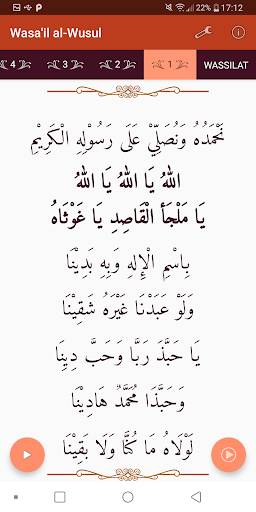 22% 17:12
Wasa'il al-Wusul
4 3 2 1 WASSILAT
نَحْمَدُهُ وَنُصَلِّيْ عَلَى رَسُوْلِهِ الْكَرِيْمِ
اللهُ يَا اللهُ يَا اللهُ
يَا مَلْجَأَ الْقَاصِدِ يَا غَوْثَاهُ
بِاسْمِ الْإِلهِ وَبِهِ بَدِيْنَا
وَلَوْ عَبَدْنَا غَيْرَهُ شَقِيْنَا
يَا حَبَّذَ رَبًّا وَحَبَّ دِيِنَا
وَحَبَّذَا مُحَمَّدٌ هَادِيْنَا
لَوْلَاهُ مَا كُنَّا وَلَا بَقِيْنَا